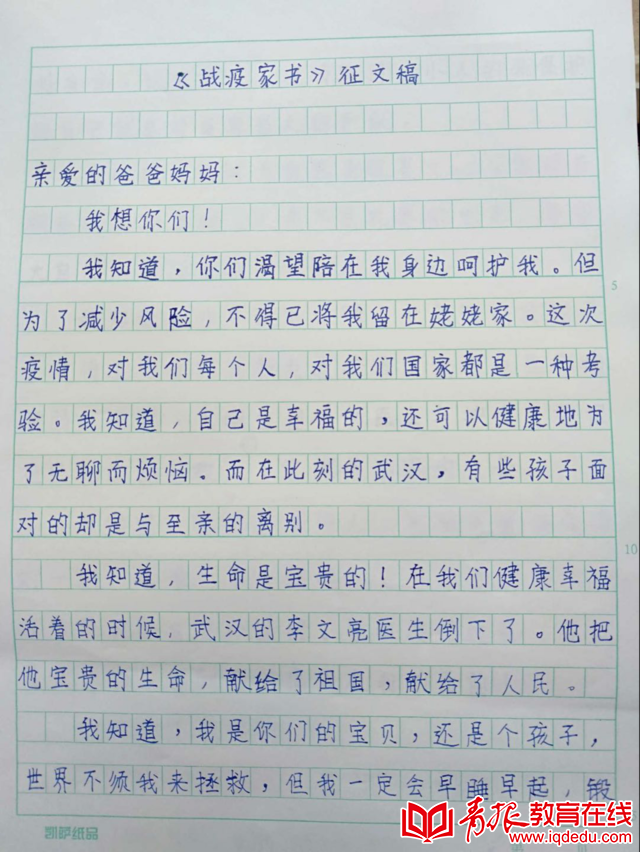 《战疫家书》征文稿
亲爱的爸爸妈妈：
我想你们！
我知道，你们渴望陪在我身边呵护我。但
为了减少风险，不得已将我留在姥姥家。这次
疫情，对我们每个人，对我们国家都是一种考
验。我知道，自己是幸福的，还可以健康地为
了无聊而烦恼。而在此刻的武汉，有些孩子面
对的却是与至亲的离别。
我知道，生命是宝贵的！在我们健康幸福
活着的时候，武汉的李文亮医生倒下了。他把
他宝贵的生命，献给了祖国，献给了人民。
我知道，我是你们的宝贝，还是个孩子，
世界不须我来拯救，但我一定会早睡早起，锻
5
10
凯萨纸品
青报教育在线
www.iqdedu.com